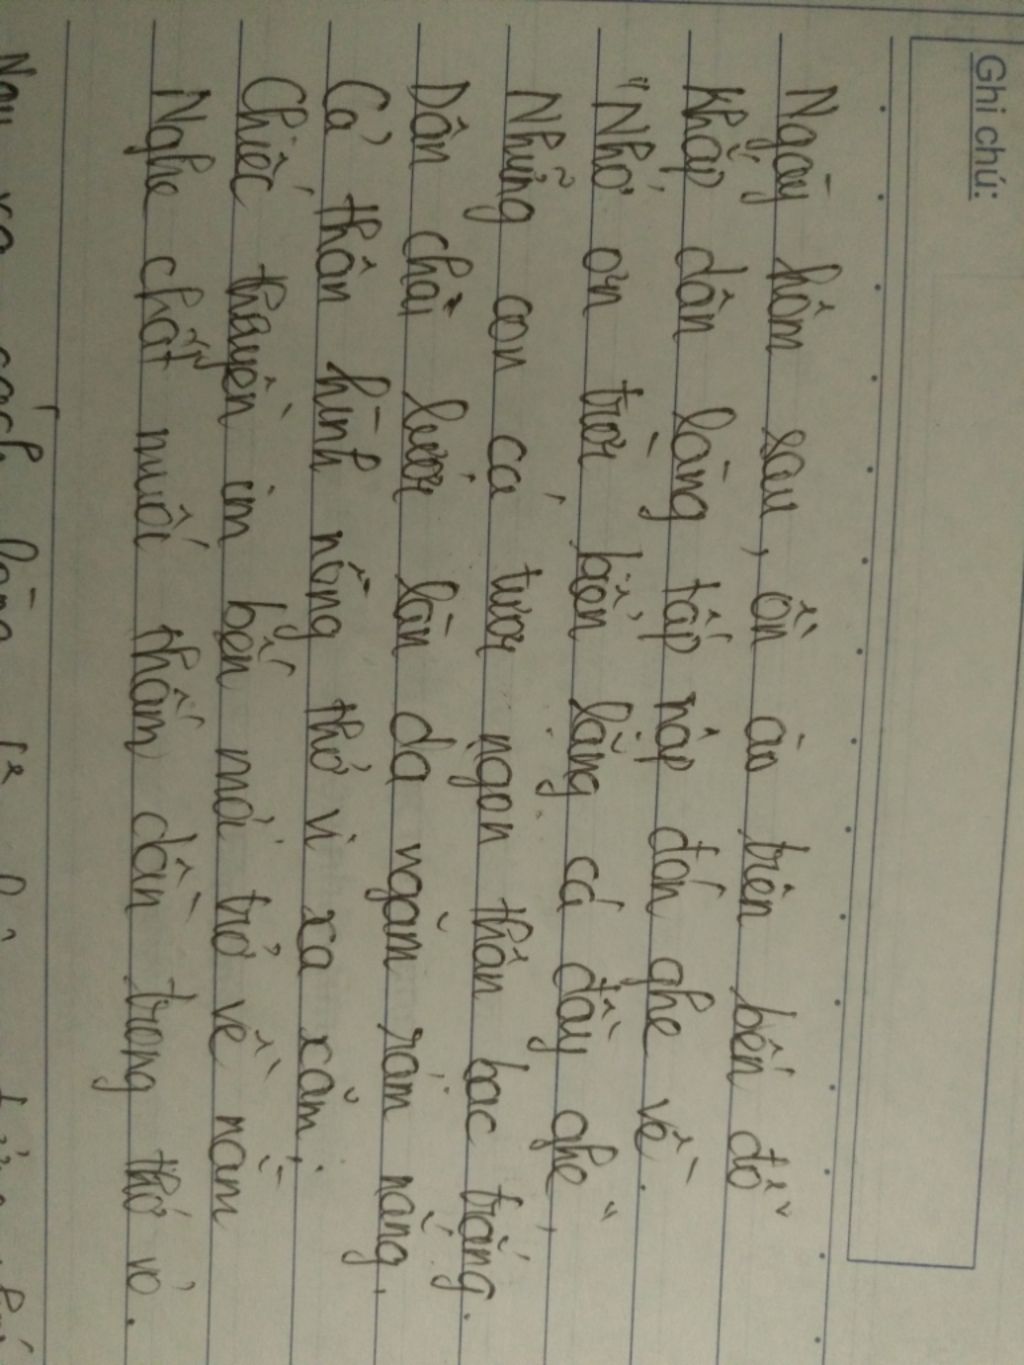 Ghi chú:
Ngày hôm sau, ồn ào trên bến đỗ
Khắp dân làng tấp nập đón ghe về.
"Nhớ ơn trời biển lặng cá đầy ghe",
Những con cá tươi ngon thân bạc trắng.
Dân chài lưới làn da ngăm rám nắng,
Cả thân hình nồng thở vị xa xăm;
Chiếc thuyền im bến mỏi trở về nằm
Nghe chất muối thấm dần trong thớ vỏ.